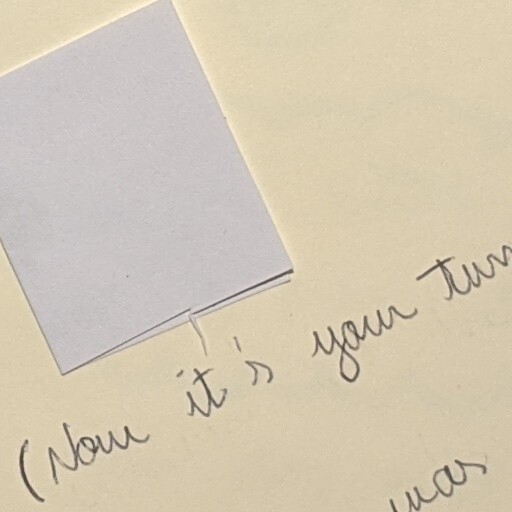 (Now it's your turn
mas